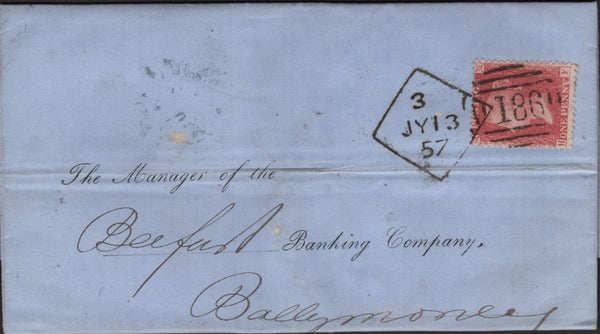 3
JY13
57
186
ONE PENNY
The Manager of the
Belfast Banking Company,
Ballymoney